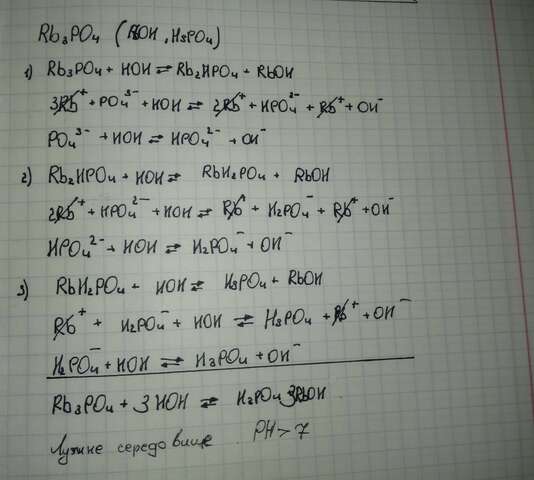 Rb₃PO₄ (RbOH, H₃PO₄)
1) Rb₃PO₄ + HOH ⇌ Rb₂HPO₄ + RbOH
3Rb⁺ + PO₄³⁻ + HOH ⇌ 2Rb⁺ + HPO₄²⁻ + Rb⁺ + OH⁻
PO₄³⁻ + HOH ⇌ HPO₄²⁻ + OH⁻
2) Rb₂HPO₄ + HOH ⇌ RbH₂PO₄ + RbOH
2Rb⁺ + HPO₄²⁻ + HOH ⇌ Rb⁺ + H₂PO₄⁻ + Rb⁺ + OH⁻
HPO₄²⁻ + HOH ⇌ H₂PO₄⁻ + OH⁻
3) RbH₂PO₄ + HOH ⇌ H₃PO₄ + RbOH
Rb⁺ + H₂PO₄⁻ + HOH ⇌ H₃PO₄ + Rb⁺ + OH⁻
H₂PO₄⁻ + HOH ⇌ H₃PO₄ + OH⁻
Rb₃PO₄ + 3HOH ⇌ H₃PO₄ 3RbOH
Лужне середовище PH > 7